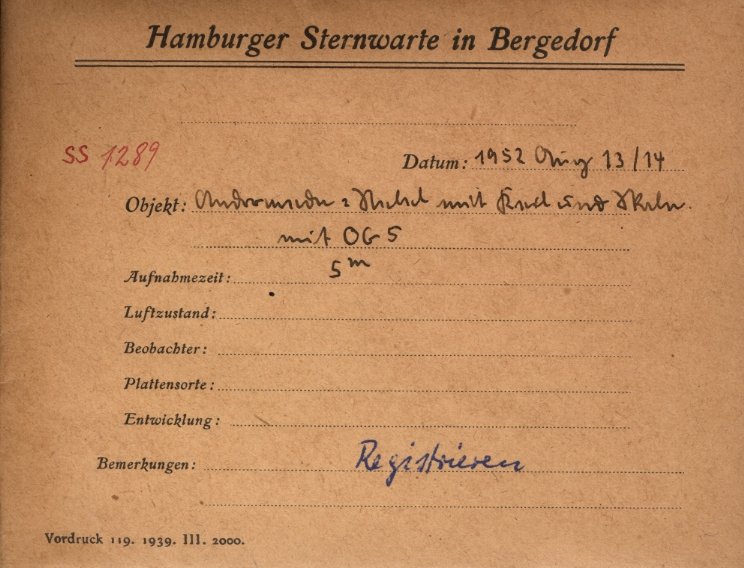 Hamburger Sternwarte in Bergedorf
SS 1289
Datum: 1952 Aug 13/14
Objekt: Andromeda=Nebel mit und
mit OG 5
Aufnahmezeit: 5m
Luftzustand:
Beobachter:
Plattensorte:
Entwicklung:
Bemerkungen: Registrieren
Vordruck 119. 1939. III. 2000.